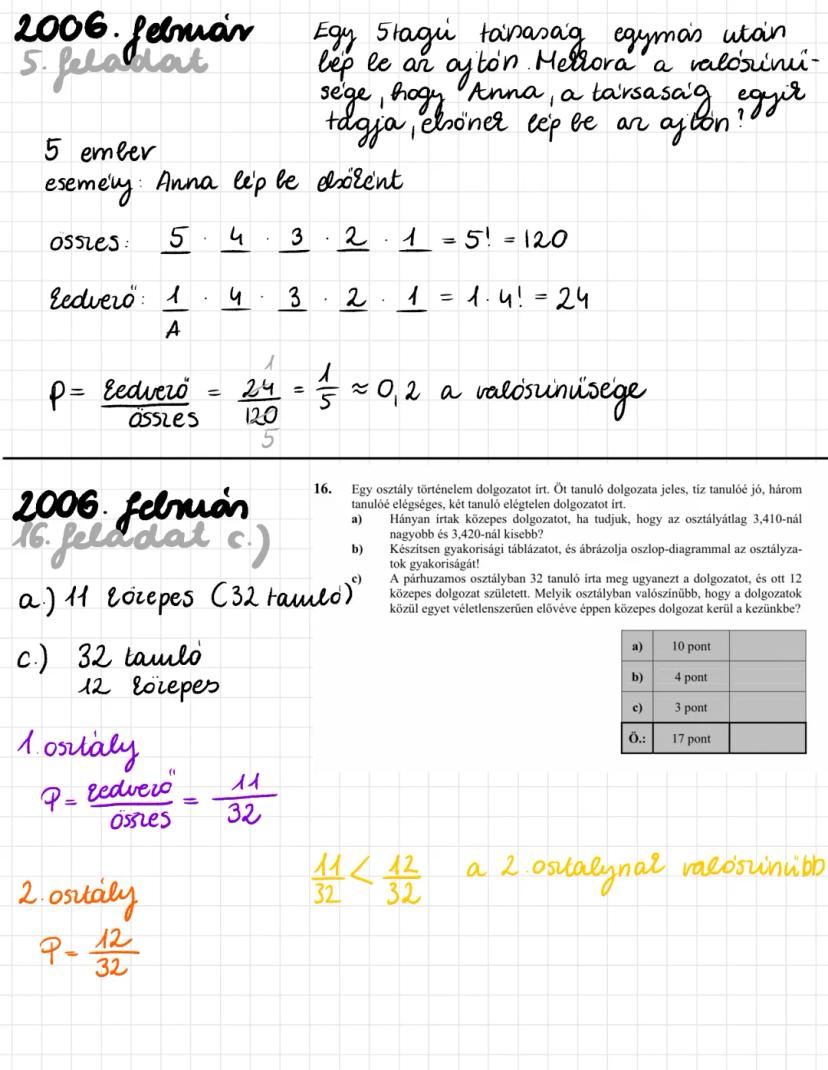 2006. február
5. feladat
Egy 5tagú társaság egymás után
lép be az ajtón. Mekkora a valószínű-
sége, hogy Anna, a társaság egyik
tagja, elsőnek lép be az ajtón?
5 ember
esemény: Anna lép be elsőként
összes: 5 · 4 · 3 · 2 · 1 = 5! = 120
kedvező: 1 · 4 · 3 · 2 · 1 = 1 · 4! = 24
A
P = kedvező/összes = 24/120 = 1/5 ≈ 0,2 a valószínűsége
1
5
2006. február
16. feladat c.)
16. Egy osztály történelem dolgozatot írt. Öt tanuló dolgozata jeles, tíz tanulóé jó, három
tanulóé elégséges, két tanuló elégtelen dolgozatot írt.
a) Hányan írtak közepes dolgozatot, ha tudjuk, hogy az osztályátlag 3,410-nál
nagyobb és 3,420-nál kisebb?
b) Készítsen gyakorisági táblázatot, és ábrázolja oszlop-diagrammal az osztályza-
tok gyakoriságát!
c) A párhuzamos osztályban 32 tanuló írta meg ugyanezt a dolgozatot, és ott 12
közepes dolgozat született. Melyik osztályban valószínűbb, hogy a dolgozatok
közül egyet véletlenszerűen elővéve éppen közepes dolgozat kerül a kezünkbe?
a) 10 pont
b) 4 pont
c) 3 pont
Ö.: 17 pont
a.) 11 közepes (32 tanuló)
c.) 32 tanuló
12 közepes
1. osztály
P = kedvező/összes = 11/32
11/32 < 12/32 a 2. osztalynak valószínűbb
2. osztály
P = 12/32